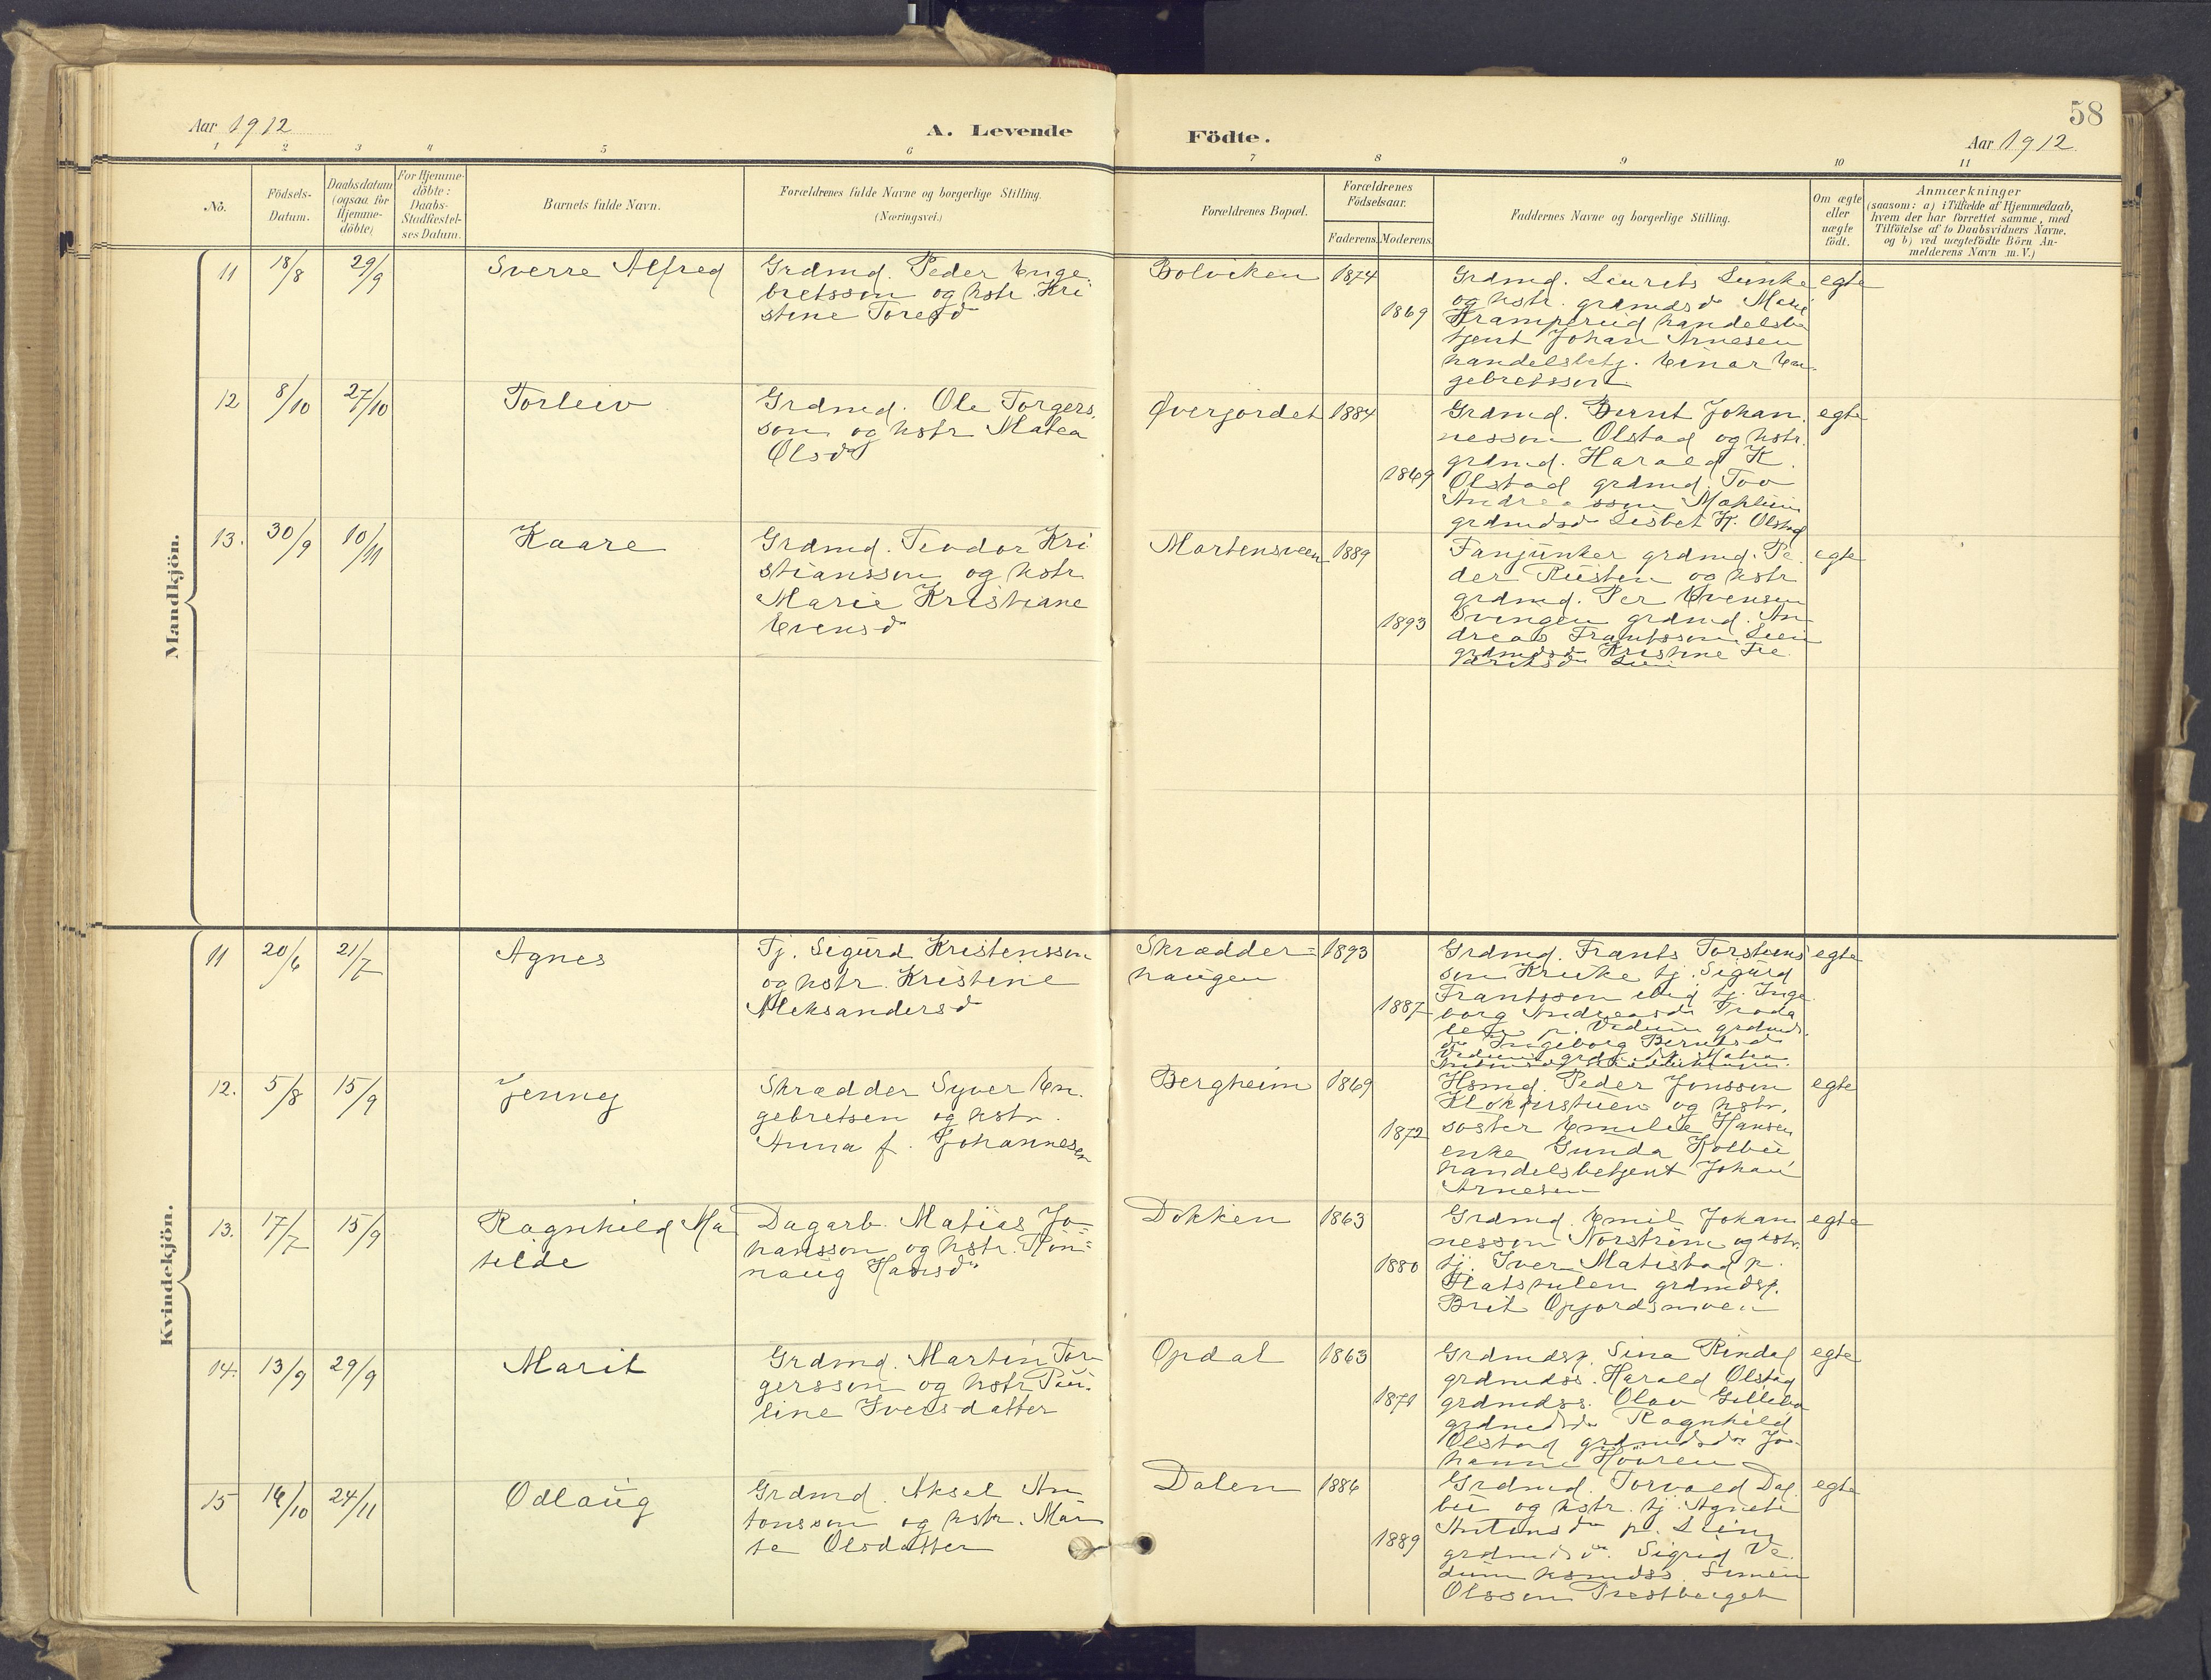 58
Aar 1912
A. Levende Födte.
Aar 1912
1 2 3 4 5 6 7 8 9 10 11
No.
Födsels-
Datum.
Daabsdatum
(ogsaa for
Hjemme-
döbte)
For Hjemme-
döbte:
Daabs-
Stadfæstel-
ses Datum.
Barnets fulde Navn.
Forældrenes fulde Navne og borgerlige Stilling.
(Næringsvei.)
Forældrenes Bopæl.
Forældrenes
Födselsaar.
Faderens. Moderens.
Faddernes Navne og borgerlige Stilling.
Om ægte
eller
uægte
födt.
Anmærkninger
(saasom: a) i Tilfælde af Hjemmedaab,
hvem der har forrettet samme, med
Tilföielse af to Daabsvidners Navne.
og b) ved uægtefödte Börn An-
melderens Navn m. V.)
Mandkjön.
11 18/8 29/9 Sverre Alfred
Grdmd. Peder Enge
bretsson og hstr. Kri
stine Toresd
Bolviken 1874
1869
Grdmd. Laurits Lunke egte
og hstr. grdmdsd Marie
Kramperud handelsbe
tjent Johan Arnesen
handelsbetj. Einar En-
gebretsson
12 8/10 27/10 Torleiv
Grdmd. Ole Torgers
son og hstr Matea
Olsd
Øverjordet 1884
1869
Grdmd. Bernt Johan egte
nesson Olstad og hstr.
grdmd. Harald K.
Olstad grdmd. Tov
Andreasson
grdmdsd Lisbet K. Olstad
13. 30/9 10/11 Kaare
Grdmd. Teodor Kri
stiansson og hstr
Marie Kristiane
Evensd
Martensveen 1889
1893
Fanjunker grdmd. Pe egte
der Rusten og hstr
grdmd. Per Evensen
Svingen grdmd. An
dreas Frantsson Lien
grdmdsd Kristine
Kvindekjön.
11 20/6 21/7 Agnes
Tj. Sigurd Kristensson
og hstr. Kristine
Aleksandersd
Skrædder=
haugen
1893
1887
Grdmd. Frants Torsteins egte
son Kruke tj. Sigurd
Frantsson tj. Inge
borg Andreasd
p. Vedum grdmds
Ingeborg Berntsd
12. 5/8 15/9 Jenny
Skrædder Syver En
gebretsen og hstr.
Anna f. Johannesen
Bergheim 1869
1872
Hsmd. Peder Jonsson egte
Klokkerstuen og hstr.
søster Emilie Hansen
enke Gunda Kolbu
handelsbetjent Johan
Arnesen
13. 17/7 15/9 Ragnhild Ma
tilde
Dagarb. Matias Jo=
hansson og hstr. Røn=
naug Hansd
Dokken 1863
1880
Grdmd. Emil Johan egte
nesson Norstrøm og hstr.
tj. Iver Matistad p.
Flatsulen grdmdsp.
Brit Opjordsmoen
14. 13/9 29/9 Marit
Grdmd. Martin Tor
gersson og hstr Pau-
line Iversdatter
Opdal 1863
1871
Grdmdsp. Sina Rindal egte
grdmdss. Harald Olstad
grdmdss. Olav Gillebo
grdmdsd Ragnhild
Olstad grdmdsd Jo-
hanne Hovren
15 16/10 24/11 Odlaug
Grdmd. Aksel An
tonsson og hstr. Mar
te Olsdatter
Dalen 1886
1889
Grdmd. Torvald Dal egte
bu og hstr. tj. Agnete
Antonsd p. Lien
grdmdsd. Sigrid Ve
dum hsmdss. Simen
Olsson Prestberget